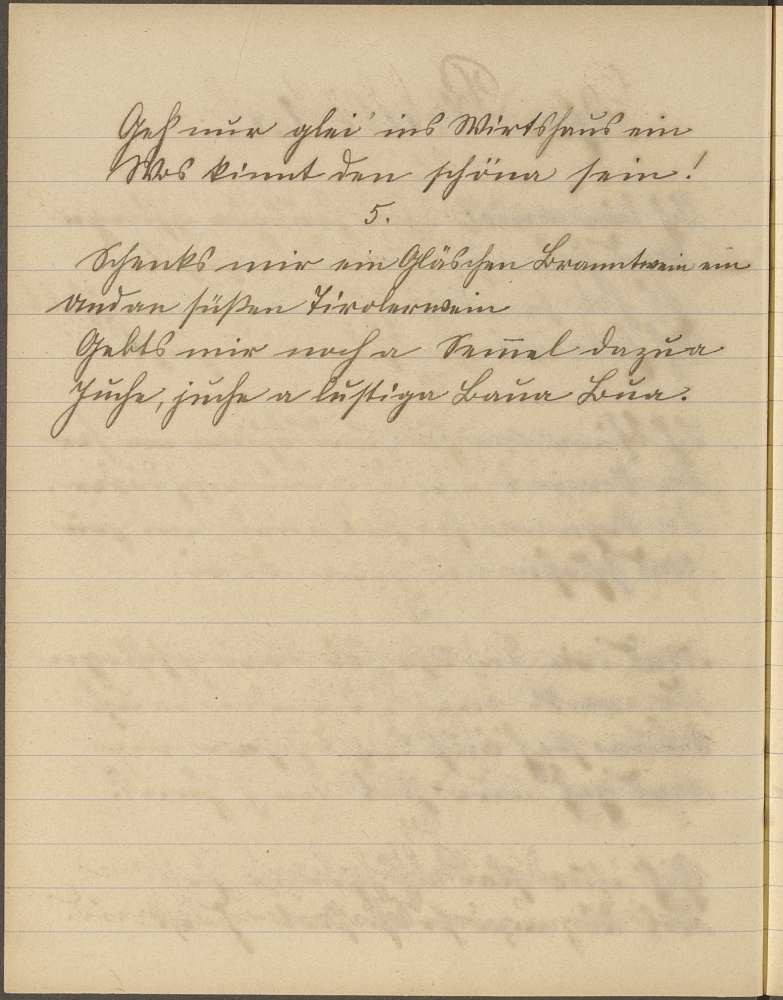 Geh nur glei' ins Wirtshaus ein
Wos kinnt den schöna sein!
5.
Schenks mir ein Gläschen Branntwein ein
und an süßen Tirolerwein
Gebts mir noch a Sem̅el dazua
Juche, juche a lustiga Baua Bua.